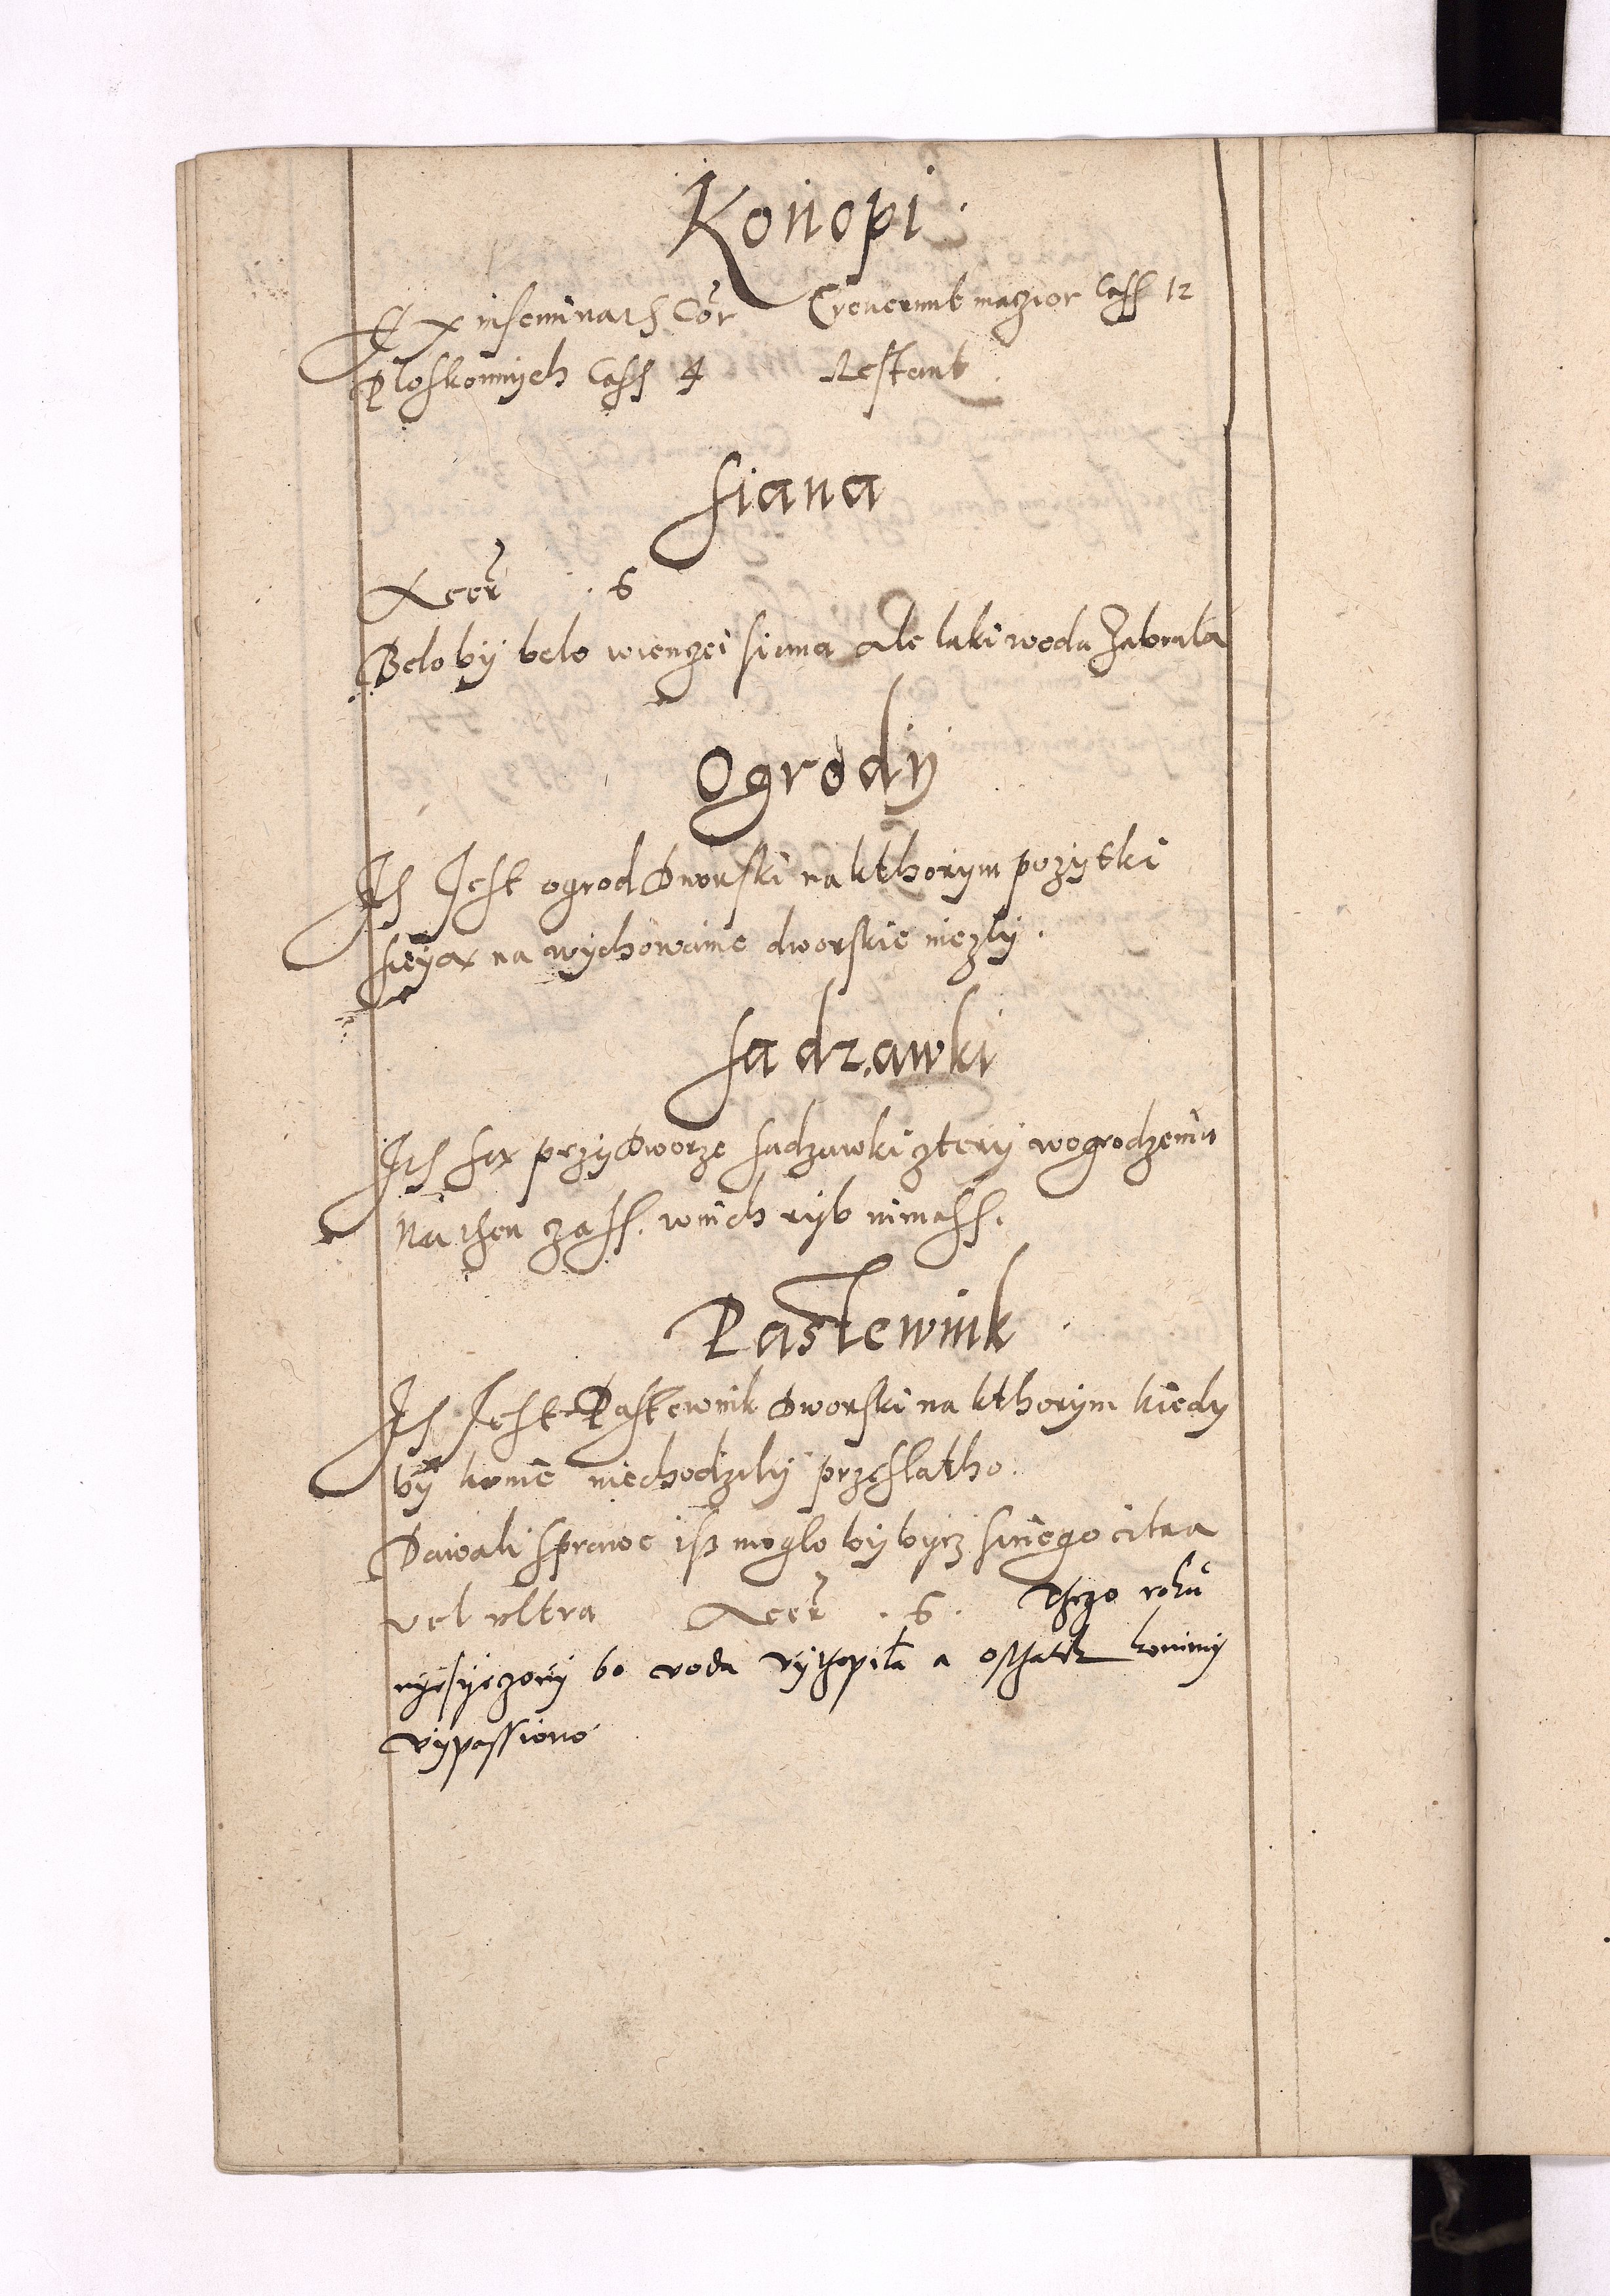 Konopi
Ex inseminatis Cor Creuerunt maczior Cass 12
Ploskonnych Cass 4 Restant
Siana
Acer͂ . 6
Belo by belo wienczei siana ale laki woda Zabrala
Ogrody
Its Jest ogrod Dworski na kthorym pozytki
sieyą na wychowanie dworskie niezly.
Sadzawki
Its są przy Dworze sadzawki cztery wogrodzeniu
Na then czass. wnich ryb nimass.
Pastewnik
Its Jest Pastewnik Dworski na kthorym kiedy
by konie niechodzily przesslatho.
Dawali sprawe iss moglo by bycz sienego citra
vel vltra Acer͂ . 6 . Thego roku
nyesyeczony bo voda vythopila a osthatek konimy
vypassiono